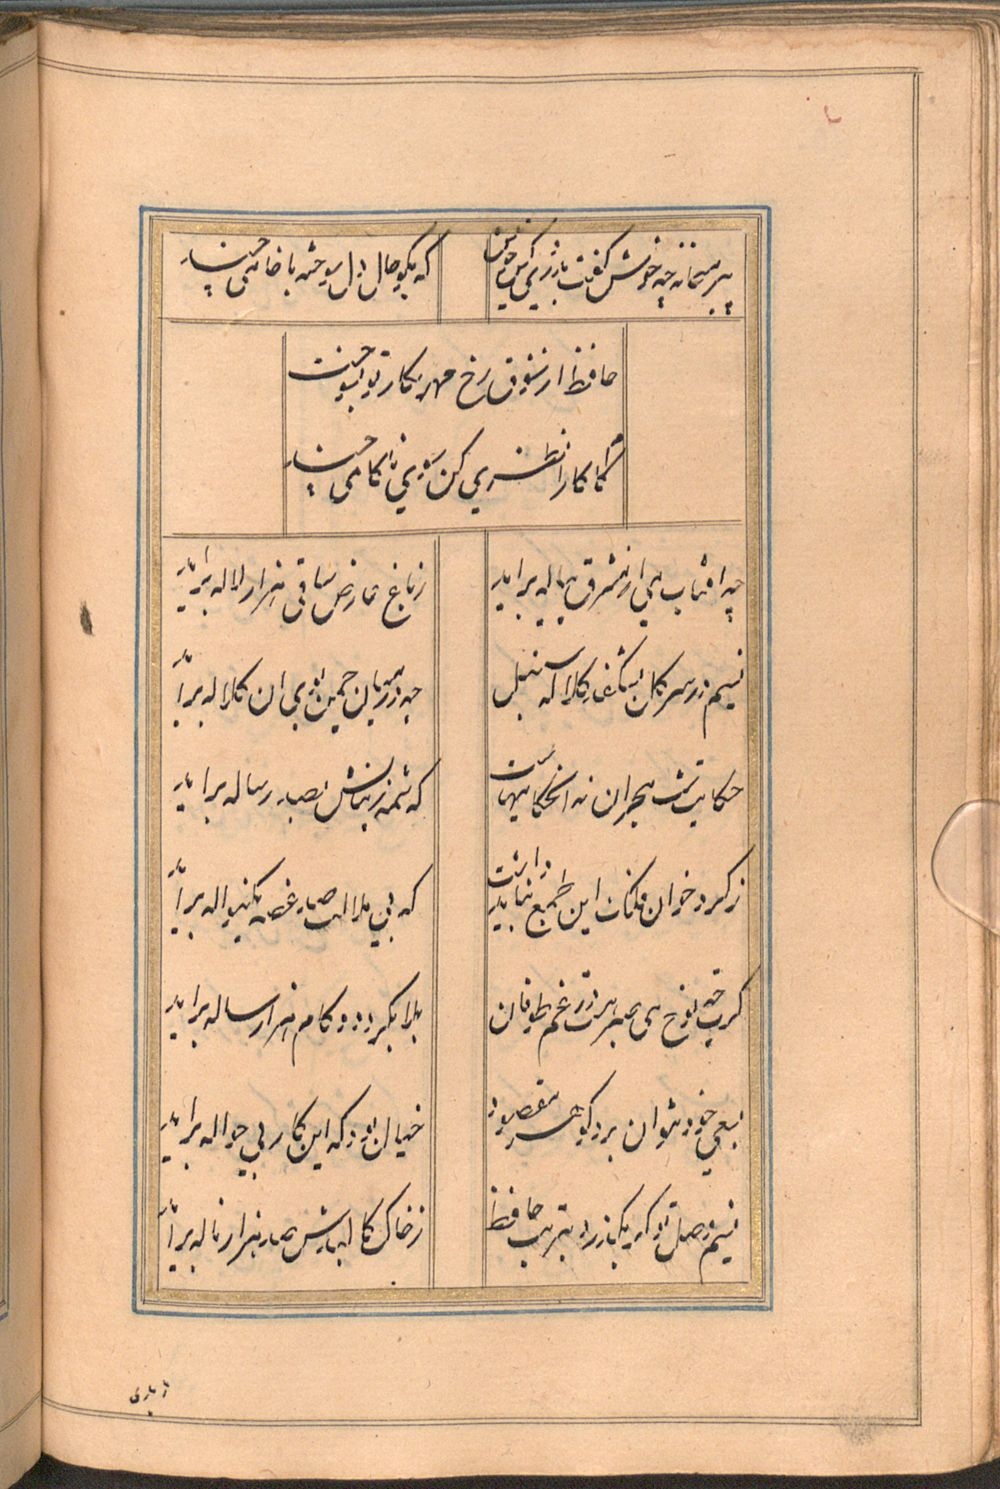 پیر میخانه چه خوش گفت بدردی کش خویش
که مگو حال دل سوخته با خامی چند
حافظ از شوق رخ مهر تو بسوخت
کامکارا نظری کن سوی ناکامی چند
چه افتاب می از مشرق پیاله براید
ز باغ عارض ساقی هزار لاله براید
نسیم در سر کل بشکند کلاله سنبل
چه در میان چمن بوی ان کلاله براید
حکایت شب هجران نه انحکایتهاست
که شمه ز بیانش بصد رساله براید
ز کرد خوان فلکت این طمع نباید داشت
که بی ملالت صد غصه یکنواله براید
کرت چه نوح نبی صبر هست در غم طوفان
بلا بکردد و کام هزار ساله براید
بسعی خود نتوان برد کوهر مقصود
خیال بود که این کار بی حواله براید
نسیم وصل تو کر بکذرد بتربت حافظ
ز خاک کالبدش صد هزار ناله براید